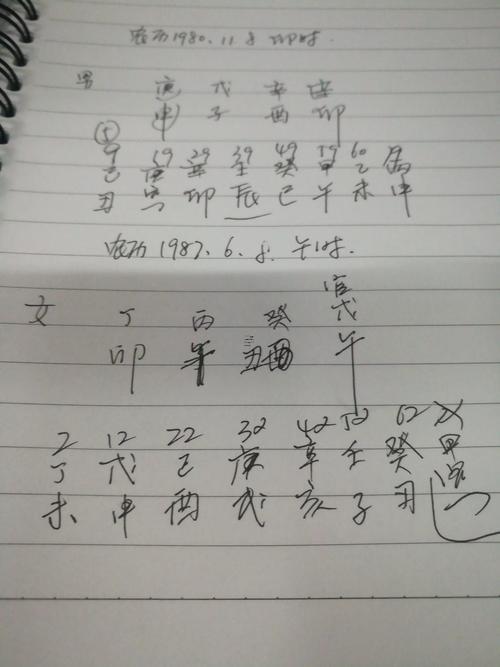 农历1980.11.8 卯时.
男 庚 戊 辛 辛
申 子 酉 卯
9 19 29 39 49 59 60
己 庚 辛 壬 癸 甲 乙 丙
丑 寅 卯 辰 巳 午 未 申
农历1987.6.8. 午时.
女 丁 丙 癸 戊
卯 午 酉 午
2 12 22 32 42 52 62
丁 戊 己 庚 辛 壬 癸 甲
未 申 酉 戌 亥 子 丑 寅